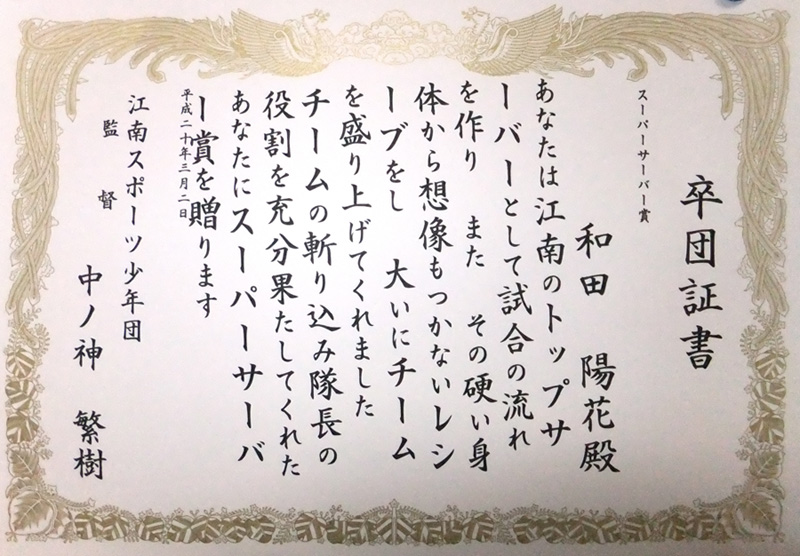 卒団証書
スーパーサーバー賞
和田 陽花殿
あなたは江南のトップサ
ーバーとして試合の流れ
を作り また その硬い身
体から想像もつかないレシ
ーブをし 大いにチーム
を盛り上げてくれました
チームの斬り込み隊長の
役割を充分果たしてくれた
あなたにスーパーサーバ
ー賞を贈ります
平成二十年三月二日
江南スポーツ少年団
監督
中ノ神 繁樹